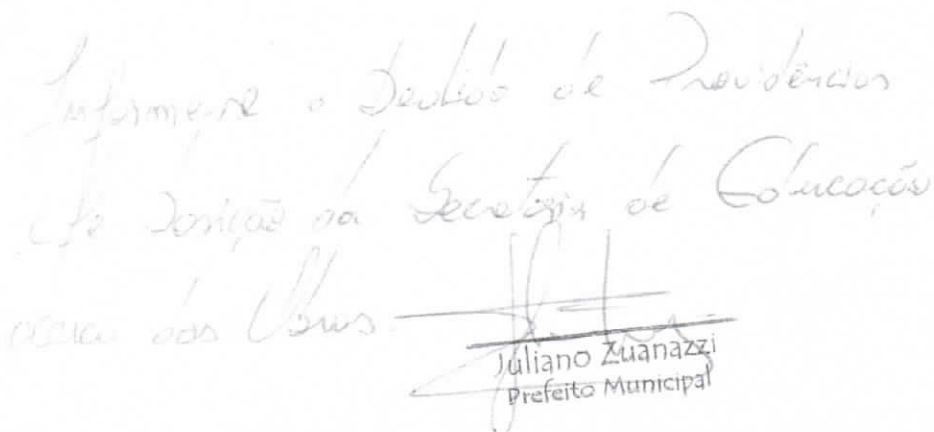 Informe-se o Pedido de Providências
cfe Posição da Secretaria de Educação
acerca das Obras.
Juliano Zuanazzi
Prefeito Municipal